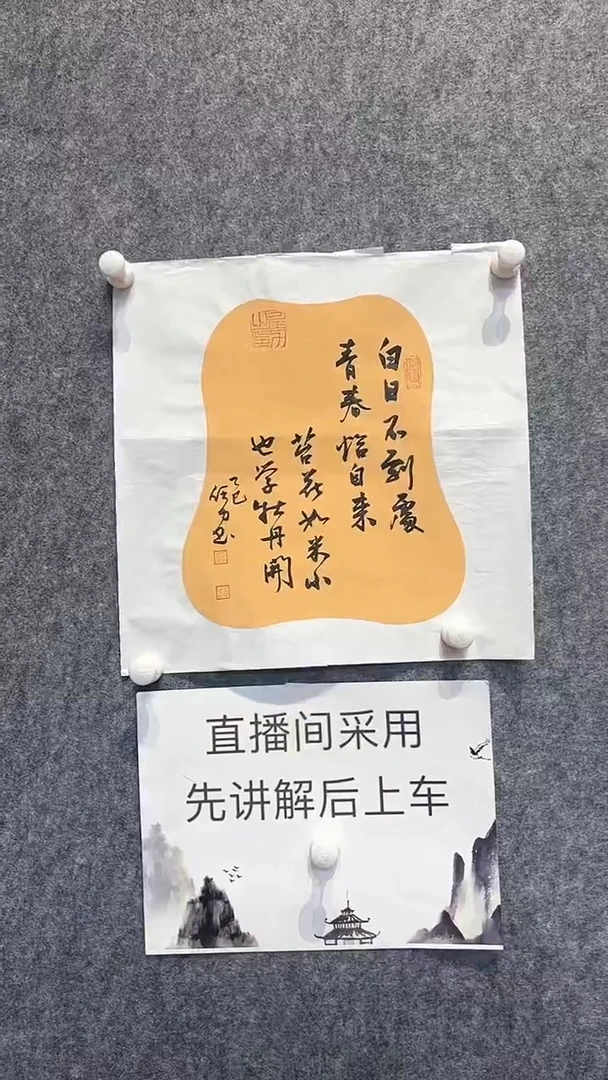 白日不到處
青春恰自来
苔花如米小
也学牡丹開
乙巳
直播间采用
先讲解后上车